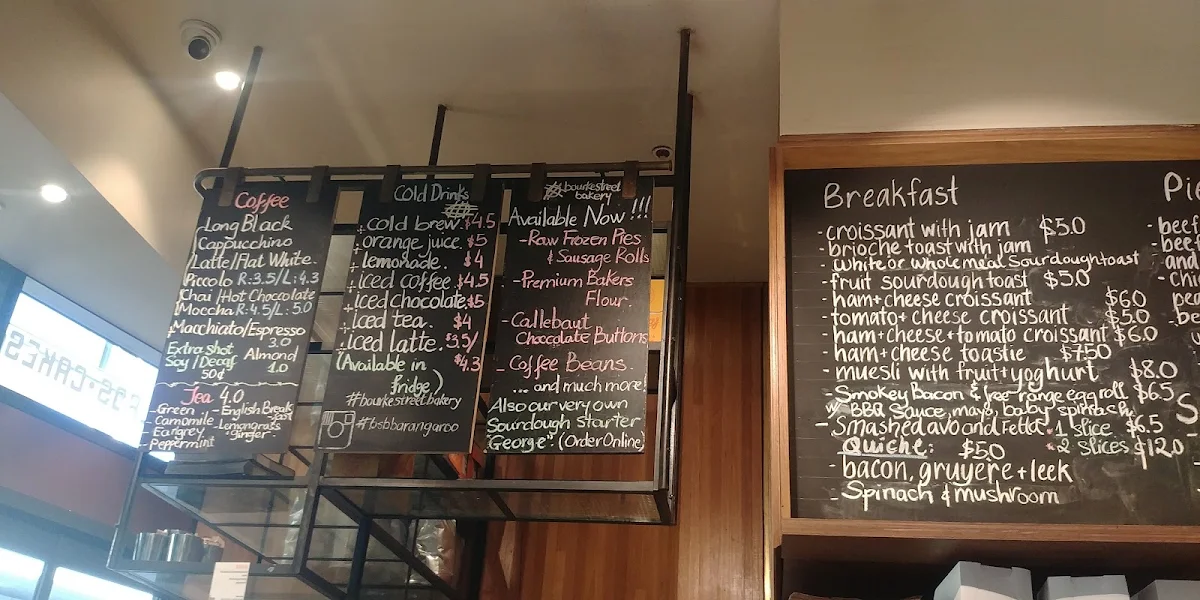 Coffee
Long Black
Cappucchino
Latte/Flat White.
Piccolo R:3.5/L:4.3
Chai/Hot Choccolate
Moccha R:4.5/L:5.0
Macchiato/Espresso
3.0
Extra shot
Soy/Decaf Almond
50¢ 1.0
Tea 4.0
- Green - English Break
fast
Camomile - Lemongrass
Earlgrey ginger
- Peppermint
Cold Drinks
cold brew. $4.5
orange juice. $5
lemonade. $4
iced coffee $4.5
iced chocolate $5
Iced tea. $4
Iced latte. 3.5/
$4.3
(Available in
fridge)
#bourkestreetbakery
#bsbbarangaroo
bourkestreet
bakery
Available Now !!!
- Raw Frozen Pies
& Sausage Rolls
- Premium Bakers
Flour.
- Callebaut
Chocolate Buttons
- Coffee Beans.
... and much more
Also our very own
Sourdough starter
"George". (Order Online)
Breakfast
- croissant with jam $5.0
- brioche toast with jam
- white or wholemeal sourdough toast
- fruit sourdough toast $5.0
- ham+cheese croissant $6.0
- tomato+cheese croissant $5.0
- ham+cheese+tomato croissant $6.0
- ham+cheese toastie $7.50
- muesli with fruit+yoghurt $8.0
- Smokey Bacon & free range egg roll $6.5
w/ BBQ Sauce, mayo, baby spinach
- Smashed avo and Fetta * 1 slice $6.5
* 2 slices $12.0
Quiche: $5.0
- bacon, gruyere + leek
- Spinach & mushroom
Pi
beef
bee
and
chi
pe
be
S
CAKES